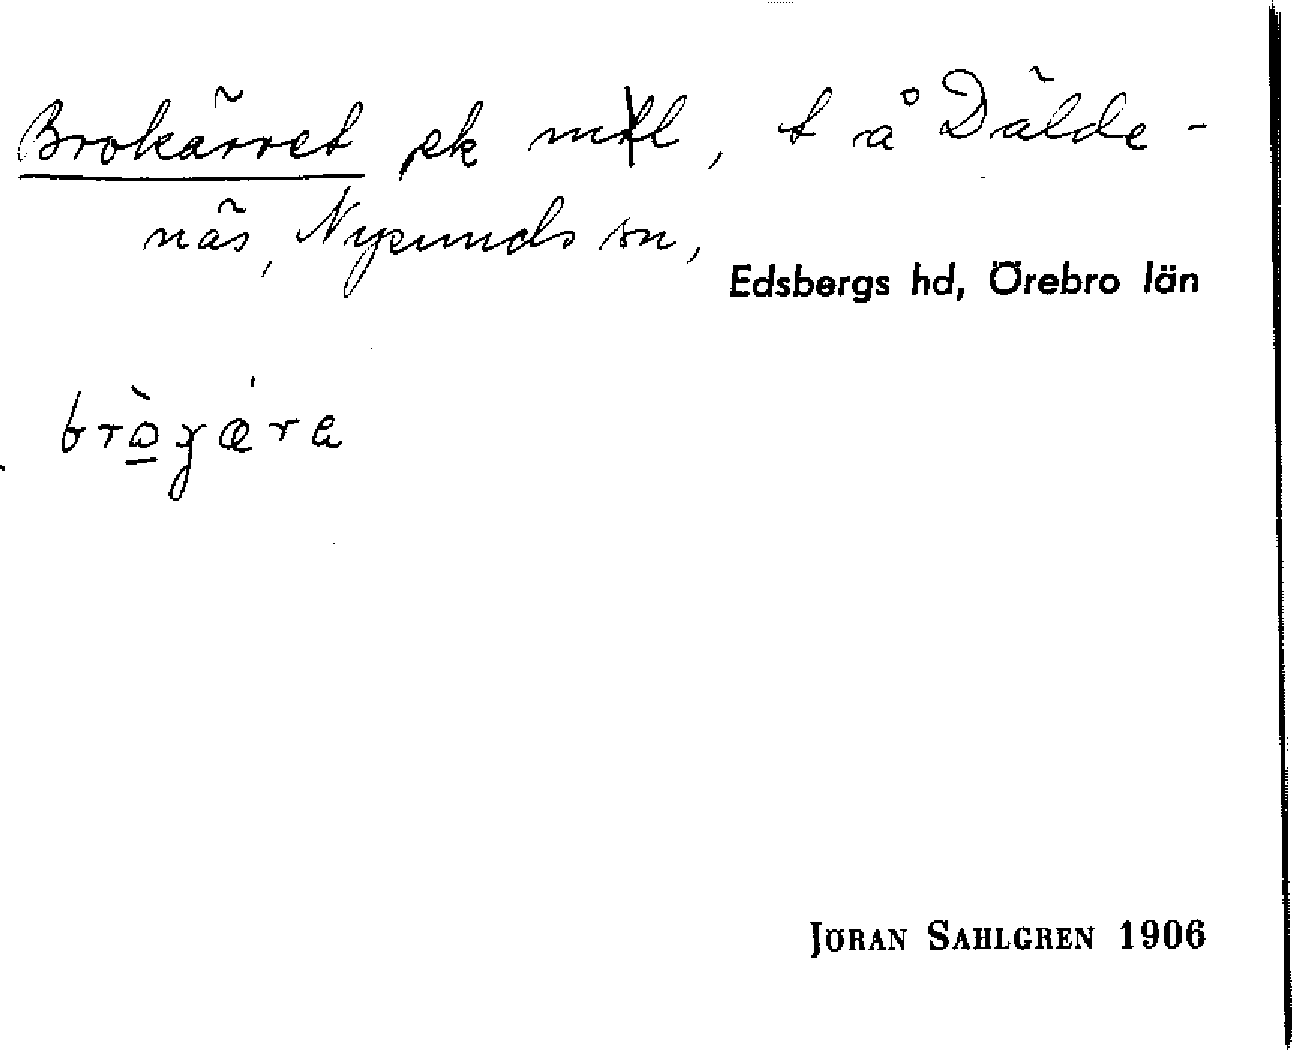 Brokärret sk mtl, t å Dälde-
näs, Nysunds sn,
Edsbergs hd, Örebro län
JÖRAN SAHLGREN 1906